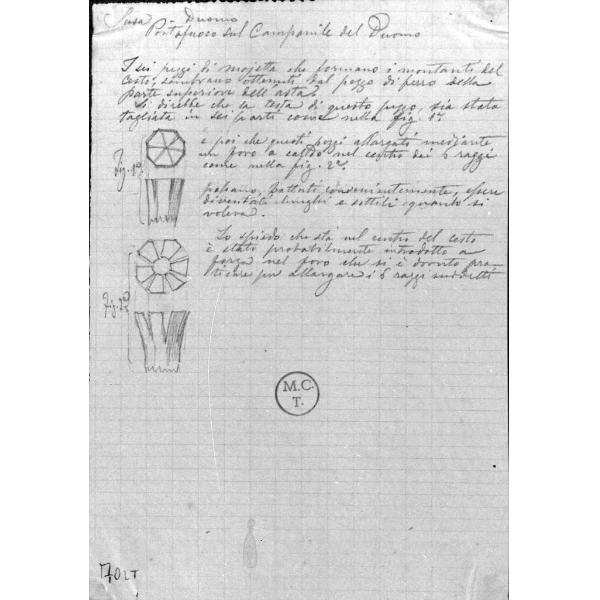 Susa Duomo
Portafuoco sul Campanile del Duomo
I sei pezzi di mojetta che formano i montanti del
cesto, sembrano ottenuti dal pezzo di ferro della
parte superiore dell'asta?
Si direbbe che la testa di questo pezzo, sia stata
tagliata in sei parti come nella fig. 1ª.
e poi che questi pezzi allargati mediante
un foro a caldo nel centro dei 6 raggi
come nella fig. 2ª.
Fig. 1ª
potsano, battuti convenientemente, essere
diventati lunghi e sottili quanto si
voleva.
Lo spiedo che sta nel centro del cesto
è stato probabilmente introdotto a
forza nel foro che si è dovuto pra-
ticare per allargare i 6 raggi suddetti
Fig. 2ª
M.C.
T.